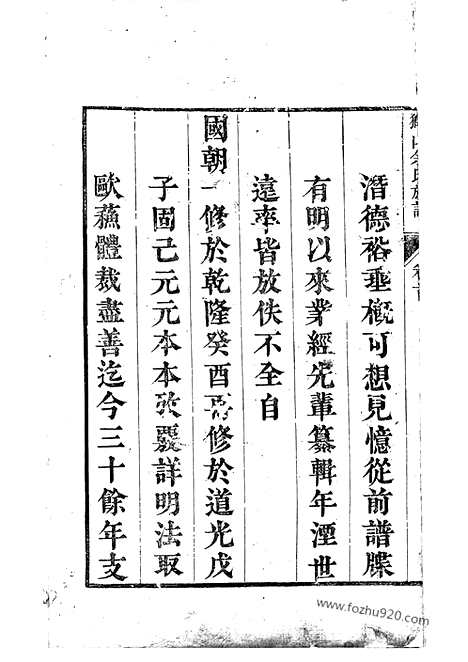 潛德裕垂概可想見憶從前譜牒
有明以來業經先輩纂輯年湮世
遠率皆放佚不全自
國朝一修於乾隆癸酉再修於道光戊
子固己元元本本孜覈詳明法取
歐蘇體裁盡善迄今三十餘年支
www.fozhu920.com